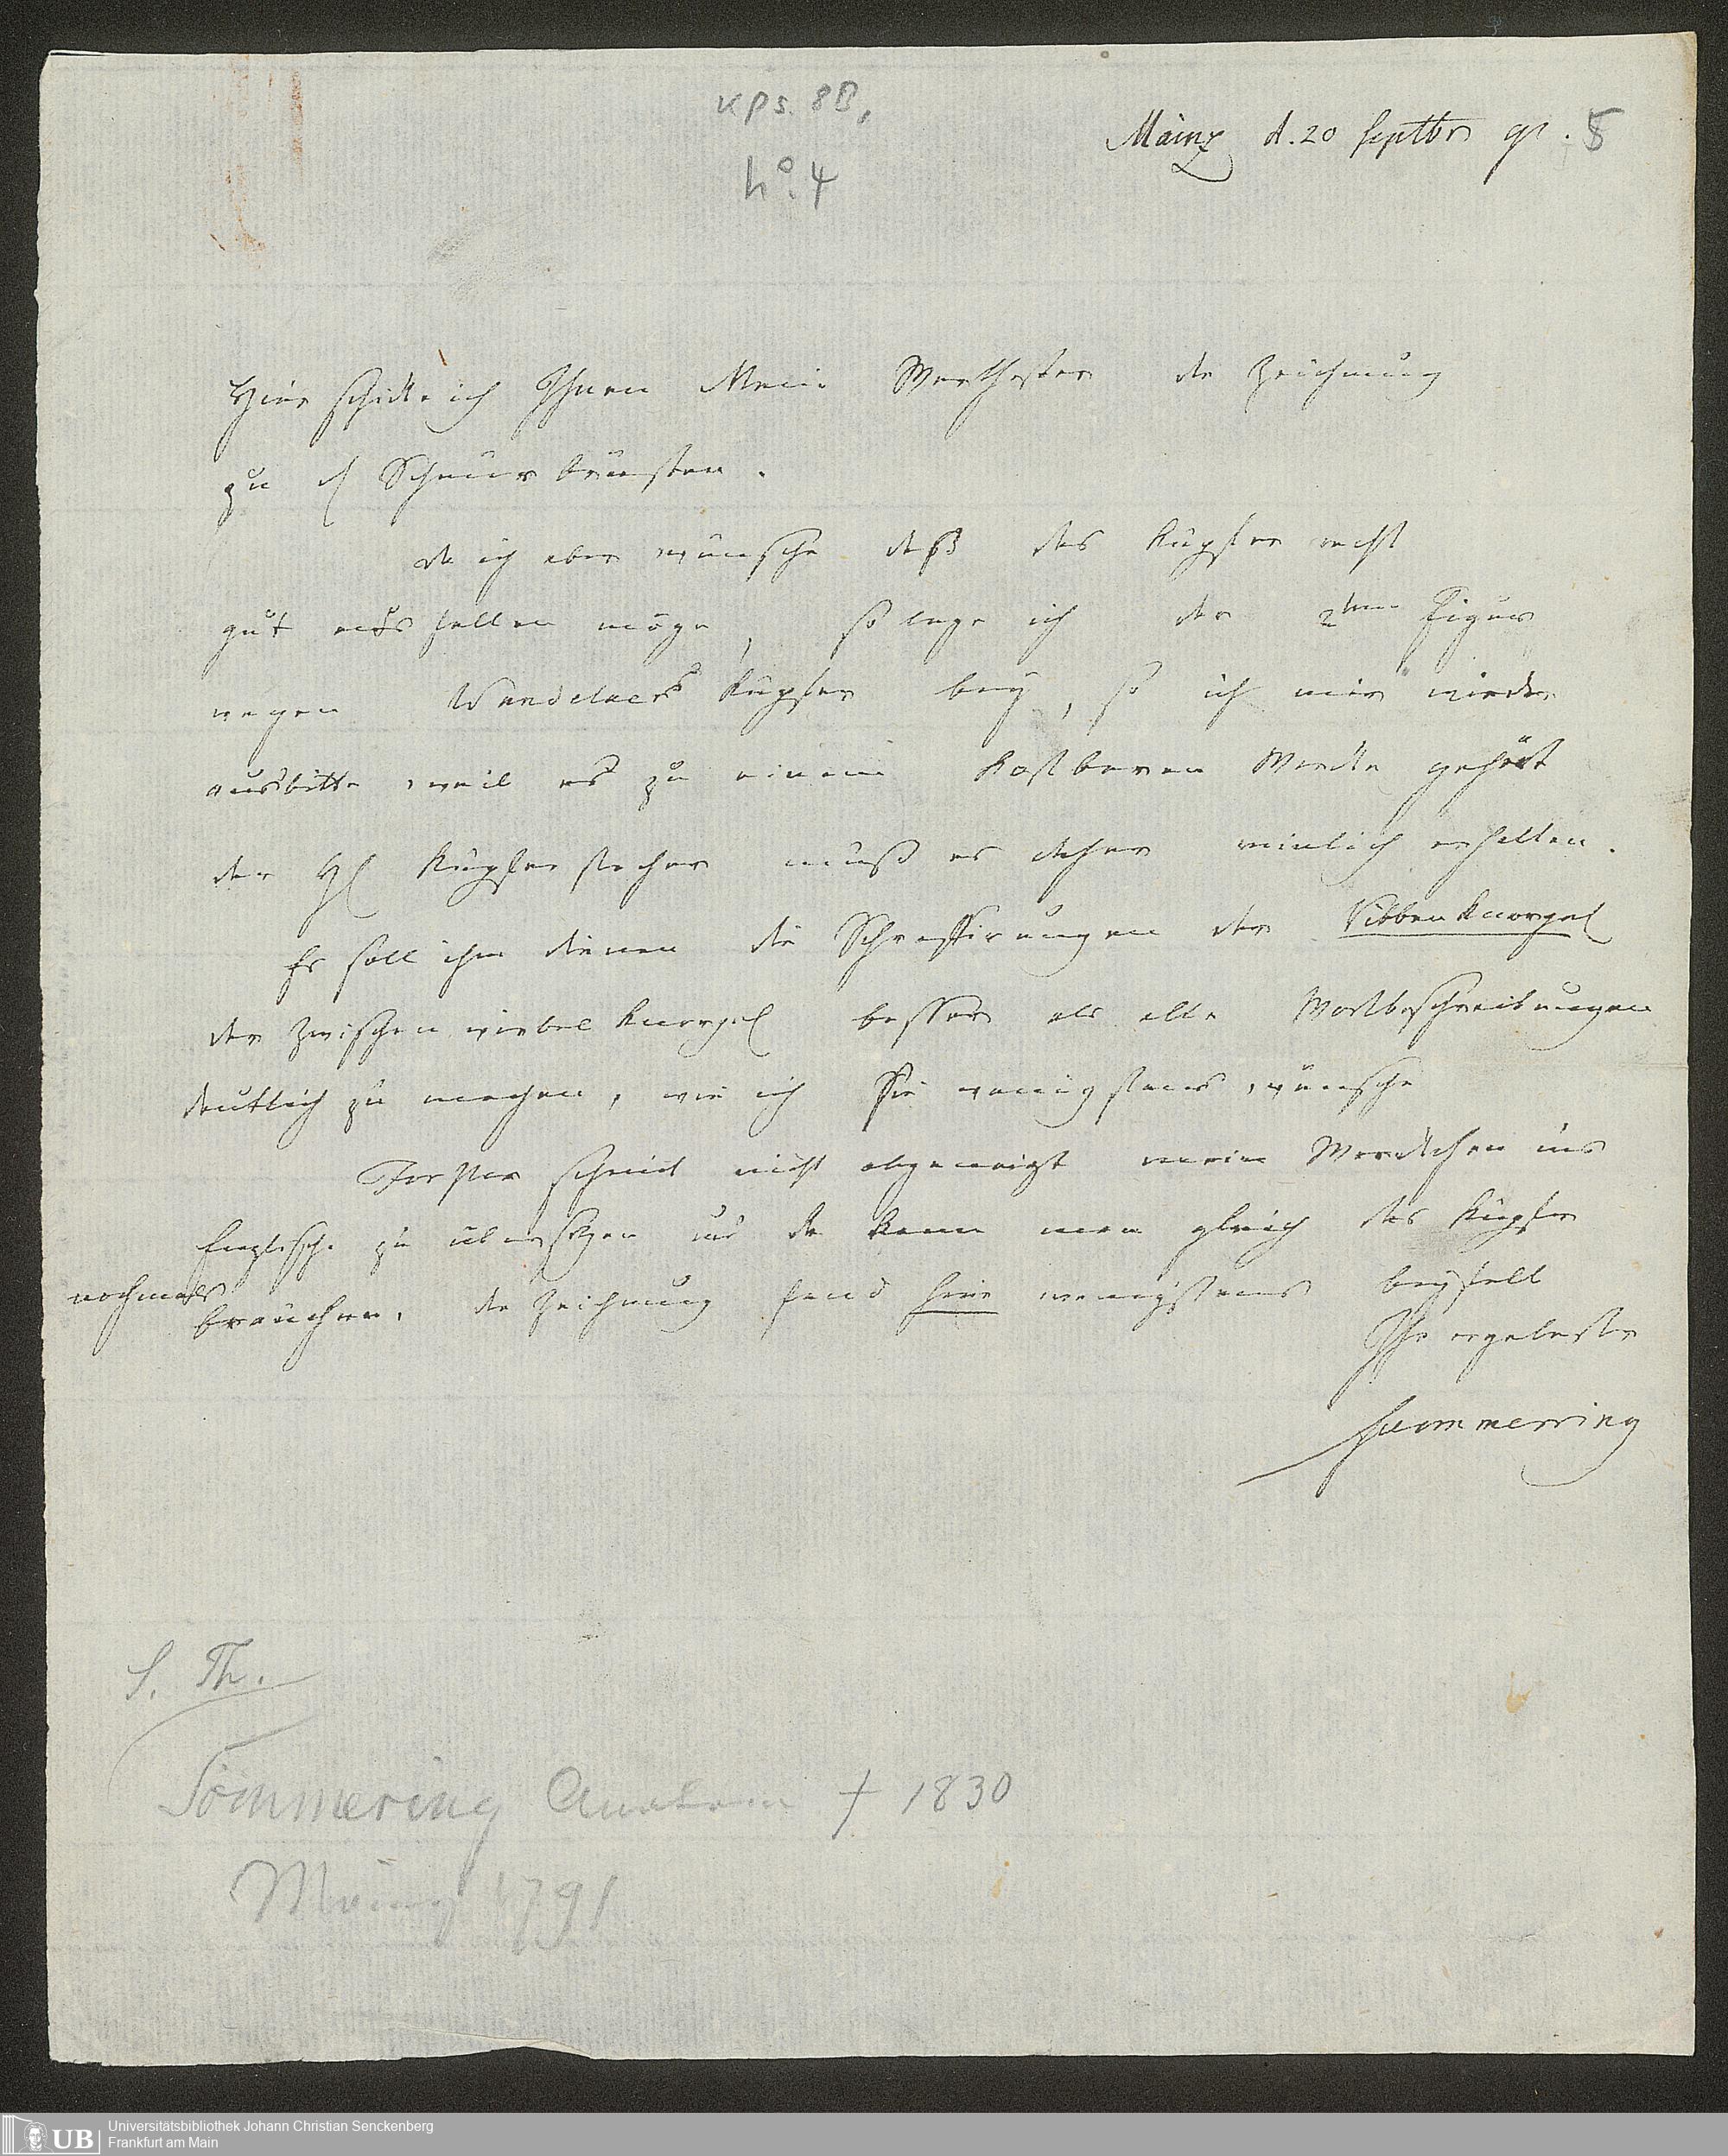 Kps. 8B,
No. 4
Mainz d. 20 septbr 91. 5
Hier schicke ich Ihnen Mein Werthester die Zeichnung
zu d Schnürbrüsten.
da ich aber wünsche daß das Kupfer recht
gut ausfallen möge, so lege ich der 2ten Figur
wegen Wandelaers Kupfer bey, so ich mir wieder
ausbitte, weil es zu einem Kostbaren Wercke gehört
der H Kupferstecher muß es daher reinlich erhalten.
Es soll ihm dienen die Schraffirungen der Ribbenknorpel
der Zwischenwirbelknorpel besser als alle Wortbeschreibungen
deutlich zu machen, wie ich sie wenigstens wünsche
Forster scheint nicht abgeneigt mein Werckchen ins
Englische zu übersetzen und da kann man gleich das Kupfer
nochmals
brauchen. die Zeichnung fand hier wenigstens beyfall
Ihr ergebenster
Soemmerring
S. Th.
Sömmering Anatom † 1830
Mainz 1791
UB
Universitätsbibliothek Johann Christian Senckenberg
Frankfurt am Main